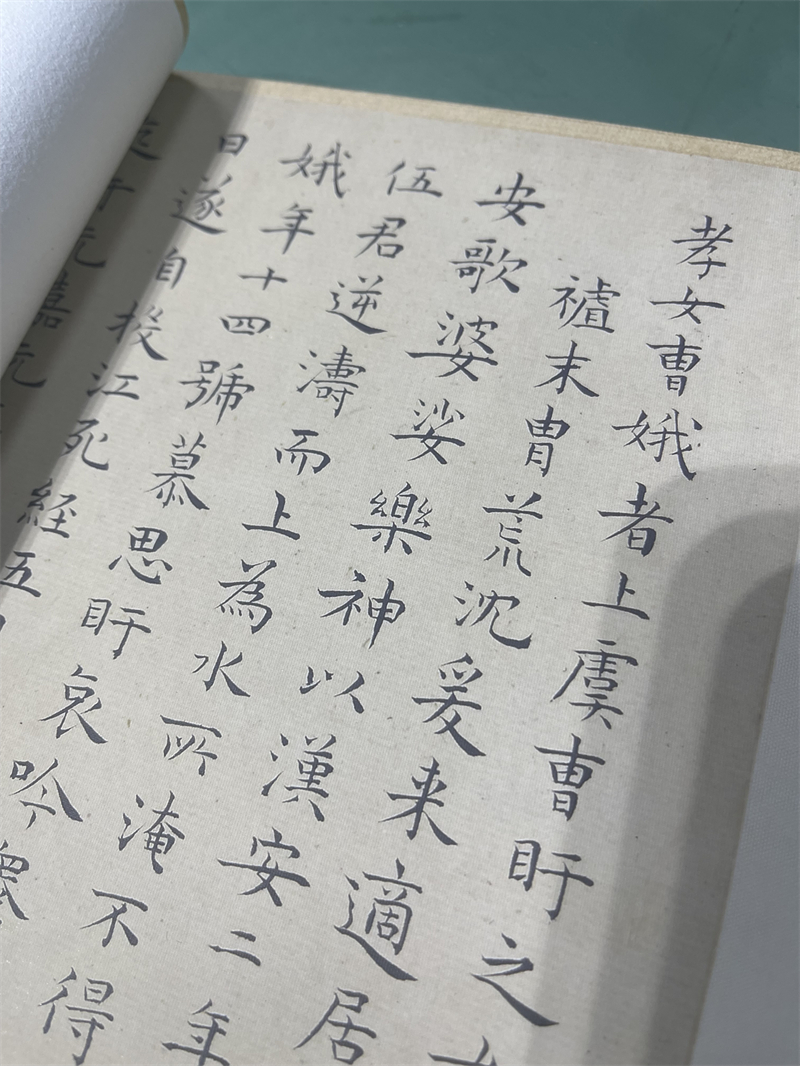 孝女曹娥者上虞曹盱之女
祖末胄荒沈爰来適居
安歌婆娑樂神以漢安二年
伍君逆濤而上為水所淹不得
娥年十四號慕思盱哀吟澤
日遂自投江死経五日
于元嘉元